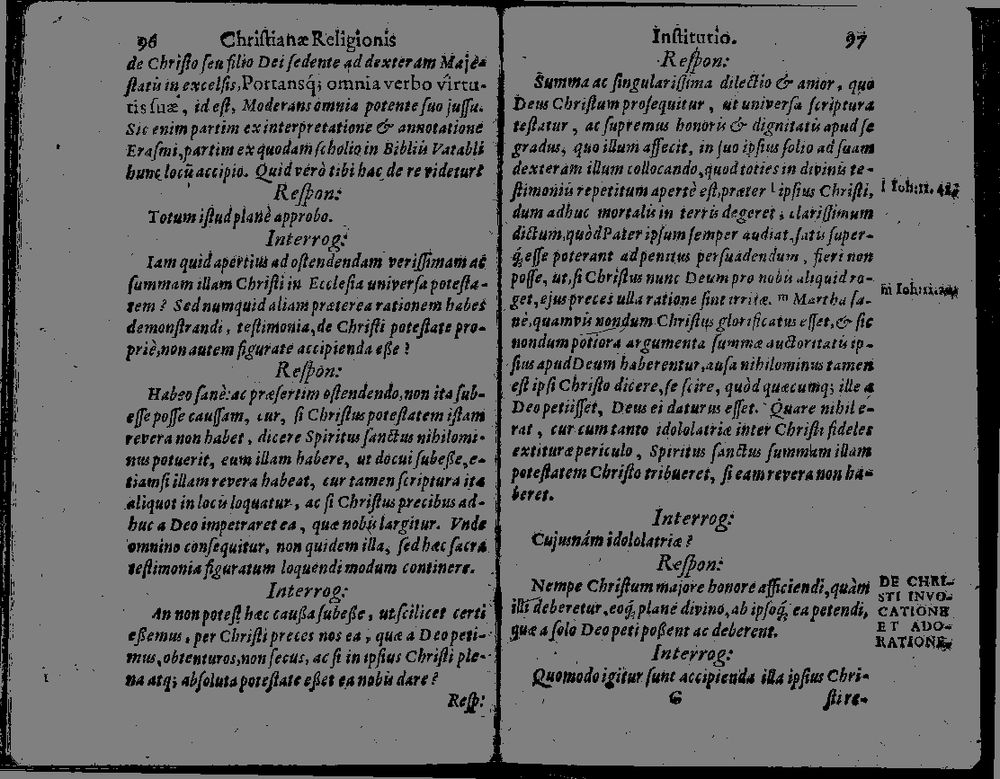 96 Christianæ Religionis
de Christo seu filio Dei sedente ad dexteram Maje-
statis in excelsis, Portansq; omnia verbo virtu-
tis suæ, id est, Moderans omnia potente suo jussu.
Sic enim partim ex interpretatione & annotatione
Erasmi, partim ex quodam scholio in Bibliis Vatabli
hunc locū accipio. Quid verò tibi hac de re videtur?
Respon:
Totum istud planè approbo.
Interrog:
Iam quid apertius ad ostendendam verissimam ac
summam illam Christi in Ecclesia universa potesta-
tem? Sed numquid aliam præterea rationem habes
demonstrandi, testimonia, de Christi potestate pro-
priè, non autem figurate accipienda esse?
Respon:
Habeo sanè: ac præsertim ostendendo, non ita sub-
esse posse caussam, cur, si Christus potestatem istam
revera non habet, dicere Spiritus sanctus nihilomi-
nus potuerit, eum illam habere, ut docui subesse, e-
tiamsi illam revera habeat, cur tamen scriptura ita
aliquot in locis loquatur, ac si Christus precibus ad-
huc a Deo impetraret ea, quæ nobis largitur. Vnde
omnino consequitur, non quidem illa, sed hæc sacra
testimonia figuratum loquendi modum continere.
Interrog:
An non potest hæc caussa subesse, ut scilicet certi
essemus, per Christi preces nos ea, quæ a Deo peti-
mus, obtenturos, non secus, ac si in ipsius Christi ple-
na atq; absoluta potestate esset ea nobis dare?
Resp:
Institutio. 97
Respon:
Summa ac singularissima dilectio & amor, quo
Deus Christum prosequitur, ut universa scriptura
testatur, ac supremus honoris & dignitatis apud se
gradus, quo illum affecit, in suo ipsius solio ad suam
dexteram illum collocando, quod toties in divinis te-
stimoniis repetitum apertè est, præter l ipsius Christi,
dum adhuc mortalis in terris degeret, clarissimum
dictum, quòd Pater ipsum semper audiat, satis super-
q́; esse poterant ad penitus persuadendum, fieri non
posse, ut, si Christus nunc Deum pro nobis aliquid ro-
get, ejus preces ulla ratione sint irritæ. m Martha sa-
nè, quamvis nondum Christus glorificatus esset, & sic
nondum potiora argumenta summæ auctoritatis ip-
sius apud Deum haberentur, ausa nihilominus tamen
est ipsi Christo dicere, se scire, quòd quæcumq; ille a
Deo petiisset, Deus ei daturus esset. Quare nihil e-
rat, cur cum tanto idololatriæ inter Christi fideles
extituræ periculo, Spiritus sanctus summum illam
potestatem Christo tribueret, si eam revera non ha-
beret.
Interrog:
Cujusnám idololatriæ?
Respon:
Nempe Christum majore honore afficiendi, quàm
illi deberetur, eoq́; planè divino, ab ipsoq́; ea petendi,
quæ a solo Deo peti possent ac deberent.
Interrog:
Quomodo igitur sunt accipienda illa ipsius Chri-
G sti re-
l Ioh: 11.
m Ioh: 11.
DE CHRI-
STI INVO-
CATIONE
ET ADO-
RATIONE.